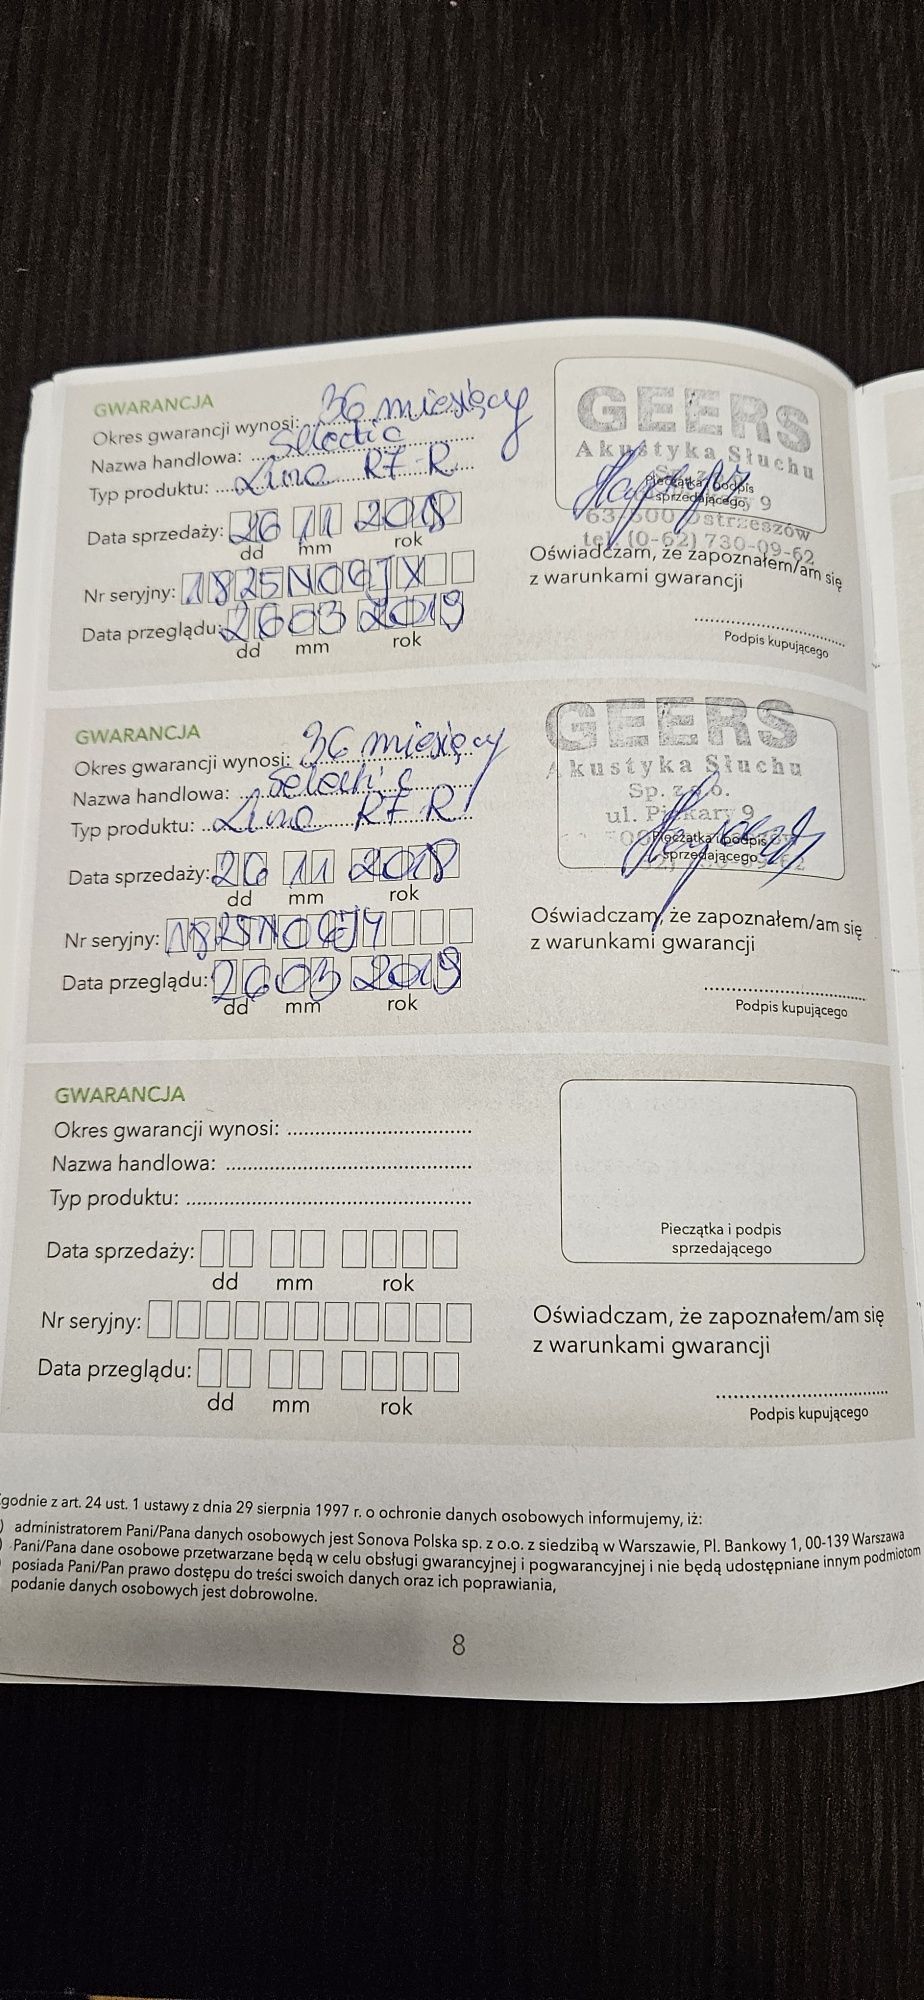 GWARANCJA
Okres gwarancji wynosi: 36 miesięcy
Nazwa handlowa: Selectic
Typ produktu: Lina R7-R
Data sprzedaży: 26 11 2018
dd mm rok
Nr seryjny: 1825N0GJX
Data przeglądu: 26 03 2019
dd mm rok
GEERS
Akustyka Słuchu
Pieczątka i podpis
sprzedającego
9
63-500 Ostrzeszów
tel. (0-62) 730-09-62
Oświadczam, że zapoznałem/am się
z warunkami gwarancji
Podpis kupującego
GWARANCJA
Okres gwarancji wynosi: 36 miesięcy
Nazwa handlowa: Selectic
Typ produktu: Lina R7-R
Data sprzedaży: 26 11 2018
dd mm rok
Nr seryjny: 1825N0GJY
Data przeglądu: 26 03 2019
dd mm rok
GEERS
Akustyka Słuchu
Sp. z o.o.
ul. Piekary 9
Pieczątka i podpis
sprzedającego
Oświadczam, że zapoznałem/am się
z warunkami gwarancji
Podpis kupującego
GWARANCJA
Okres gwarancji wynosi:
Nazwa handlowa:
Typ produktu:
Data sprzedaży:
dd mm rok
Nr seryjny:
Data przeglądu:
dd mm rok
Pieczątka i podpis
sprzedającego
Oświadczam, że zapoznałem/am się
z warunkami gwarancji
Podpis kupującego
godnie z art. 24 ust. 1 ustawy z dnia 29 sierpnia 1997 r. o ochronie danych osobowych informujemy, iż:
) administratorem Pani/Pana danych osobowych jest Sonova Polska sp. z o.o. z siedzibą w Warszawie, Pl. Bankowy 1, 00-139 Warszawa
) Pani/Pana dane osobowe przetwarzane będą w celu obsługi gwarancyjnej i pogwarancyjnej i nie będą udostępniane innym podmiotom
posiada Pani/Pan prawo dostępu do treści swoich danych oraz ich poprawiania,
podanie danych osobowych jest dobrowolne.
8